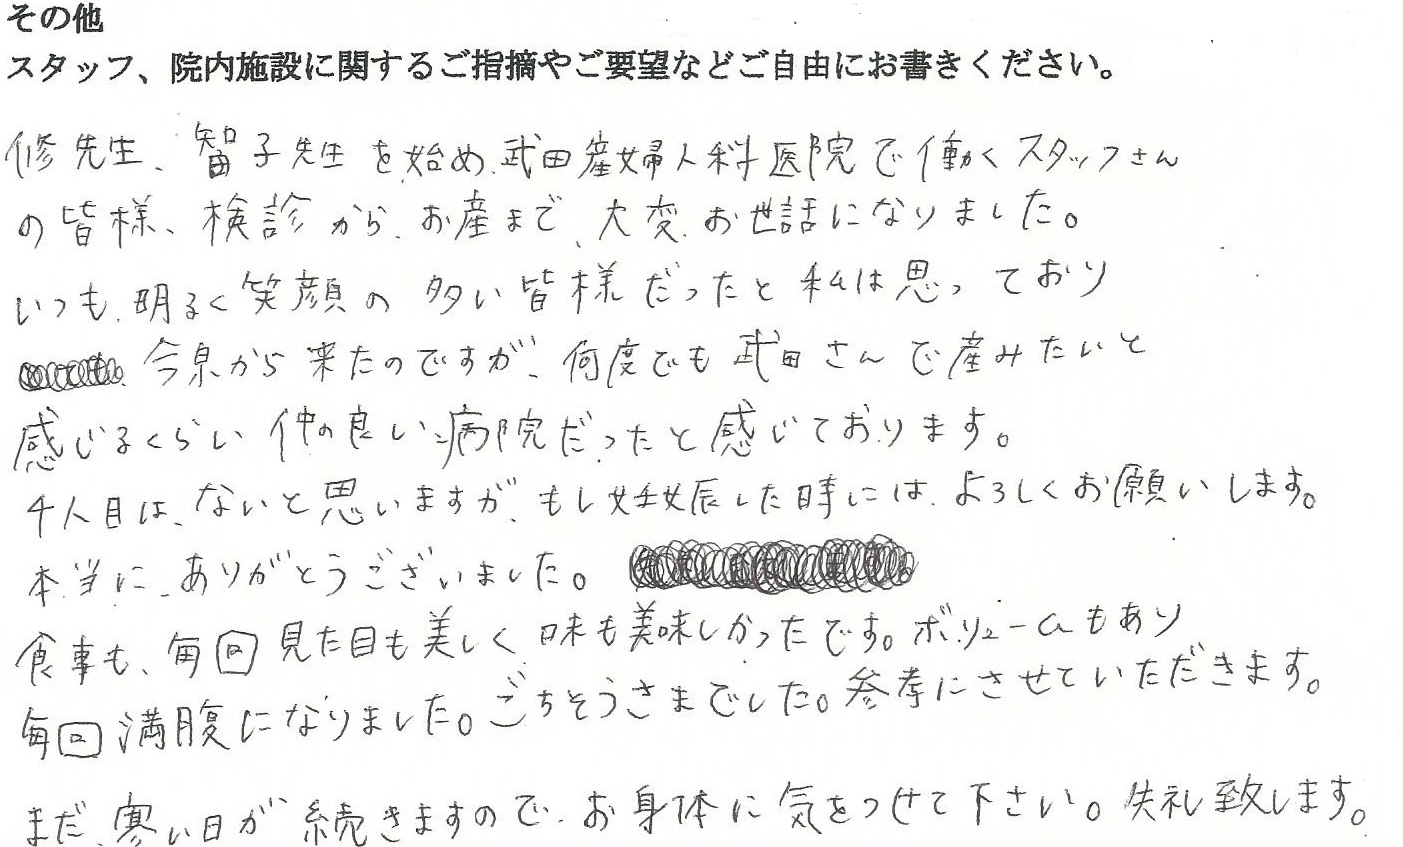 その他
スタッフ、院内施設に関するご指摘やご要望などご自由にお書きください。
修先生、智子先生を始め、武田産婦人科医院で働くスタッフさん
の皆様、検診から、お産まで、大変、お世話になりました。
いつも、明るく笑顔の多い皆様だったと私は思っており
今泉から来たのですが、何度でも武田さんで産みたいと
感じるくらい仲の良い病院だったと感じております。
4人目は、ないと思いますが、もし妊娠した時には、よろしくお願いします。
本当に、ありがとうございました。
食事も、毎回見た目も美しく味も美味しかったです。ボリュームもあり
毎回満腹になりました。ごちそうさまでした。参考にさせていただきます。
まだ、寒い日が続きますので、お身体に気をつせて下さい。失礼致します。